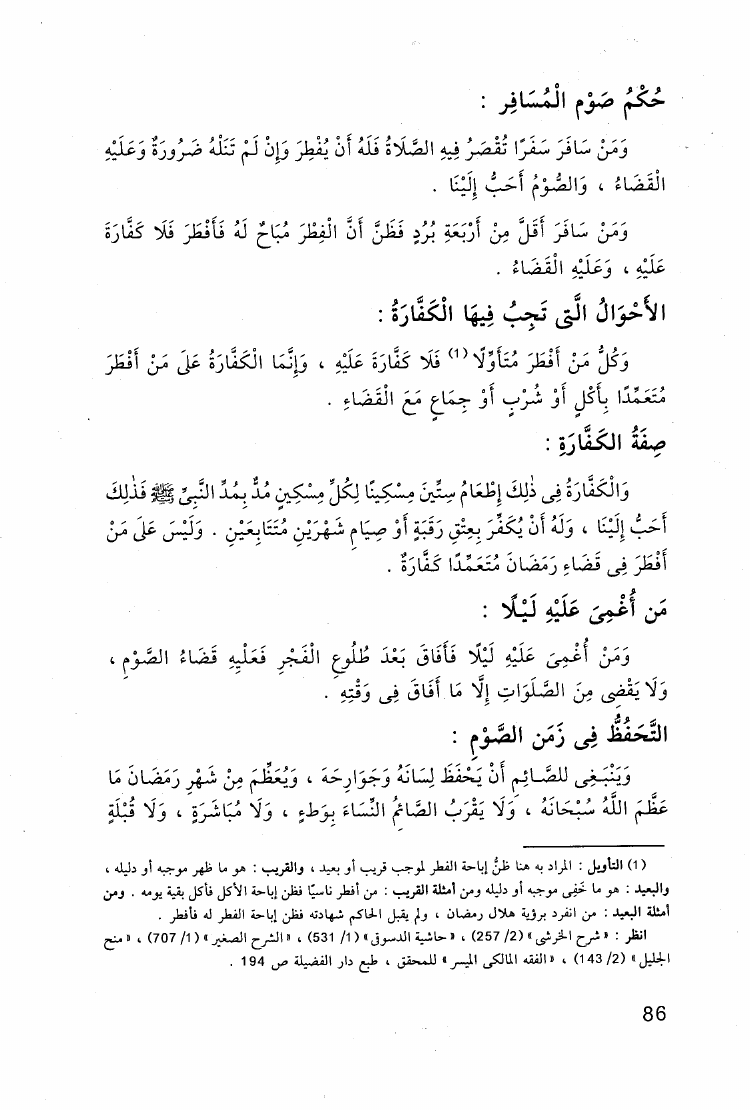 حُكْمُ صَوْمِ الْمُسَافِرِ :
وَمَنْ سَافَرَ سَفَرًا تُقْصَرُ فِيهِ الصَّلَاةُ فَلَهُ أَنْ يُفْطِرَ وَإِنْ لَمْ تَنَلْهُ ضَرُورَةٌ وَعَلَيْهِ
الْقَضَاءُ ، وَالصَّوْمُ أَحَبُّ إِلَيْنَا .
وَمَنْ سَافَرَ أَقَلَّ مِنْ أَرْبَعَةِ بُرُدٍ فَظَنَّ أَنَّ الْفِطْرَ مُبَاحٌ لَهُ فَأَفْطَرَ فَلَا كَفَّارَةَ
عَلَيْهِ ، وَعَلَيْهِ الْقَضَاءُ .
الأَحْوَالُ الَّتِى تَجِبُ فِيهَا الْكَفَّارَةُ :
وَكُلُّ مَنْ أَفْطَرَ مُتَأَوِّلًا (1) فَلَا كَفَّارَةَ عَلَيْهِ ، وَإِنَّمَا الْكَفَّارَةُ عَلَى مَنْ أَفْطَرَ
مُتَعَمِّدًا بِأَكْلٍ أَوْ شُرْبٍ أَوْ جِمَاعٍ مَعَ الْقَضَاءِ .
صِفَةُ الكَفَّارَةِ :
وَالْكَفَّارَةُ فِى ذٰلِكَ إِطْعَامُ سِتِّينَ مِسْكِينًا لِكُلِّ مِسْكِينٍ مُدٌّ بِمُدِّ النَّبِىِّ ﷺ فَذٰلِكَ
أَحَبُّ إِلَيْنَا ، وَلَهُ أَنْ يُكَفِّرَ بِعِتْقِ رَقَبَةٍ أَوْ صِيَامِ شَهْرَيْنِ مُتَتَابِعَيْنِ . وَلَيْسَ عَلَى مَنْ
أَفْطَرَ فِى قَضَاءِ رَمَضَانَ مُتَعَمِّدًا كَفَّارَةٌ .
مَن أُغْمِىَ عَلَيْهِ لَيْلًا :
وَمَنْ أُغْمِىَ عَلَيْهِ لَيْلًا فَأَفَاقَ بَعْدَ طُلُوعِ الْفَجْرِ فَعَلَيْهِ قَضَاءُ الصَّوْمِ ،
وَلَا يَقْضِى مِنَ الصَّلَوَاتِ إِلَّا مَا أَفَاقَ فِى وَقْتِهِ .
التَّحَفُّظُ فِى زَمَنِ الصَّوْمِ :
وَيَنْبَغِى للصَّائِمِ أَنْ يَحْفَظَ لِسَانَهُ وَجَوَارِحَهُ ، وَيُعَظِّمَ مِنْ شَهْرِ رَمَضَانَ مَا
عَظَّمَ اللَّهُ سُبْحَانَهُ ، وَلَا يَقْرَبُ الصَّائِمُ النِّسَاءَ بِوَطءٍ ، وَلَا مُبَاشَرَةٍ ، وَلَا قُبْلَةٍ
(1) التأويل : المراد به هنا ظنُّ إباحة الفطر لموجب قريب أو بعيد ، والقريب : هو ما ظهر موجبه أو دليله ،
والبعيد : هو ما خَفِى موجبه أو دليله ومن أمثلة القريب : من أفطر ناسيًا فظن إباحة الأكل فأكل بقية يومه . ومن
أمثلة البعيد : من انفرد برؤية هلال رمضان ، ولم يقبل الحاكم شهادته فظن إباحة الفطر له فأفطر .
انظر : « شرح الخرشى » (2/ 257) ، « حاشية الدسوقى » (1/ 531) ، « الشرح الصغير » (1/ 707) ، « منح
الجليل » (2/ 143) ، « الفقه المالكى الميسر » للمحقق ، طبع دار الفضيلة ص 194 .
86